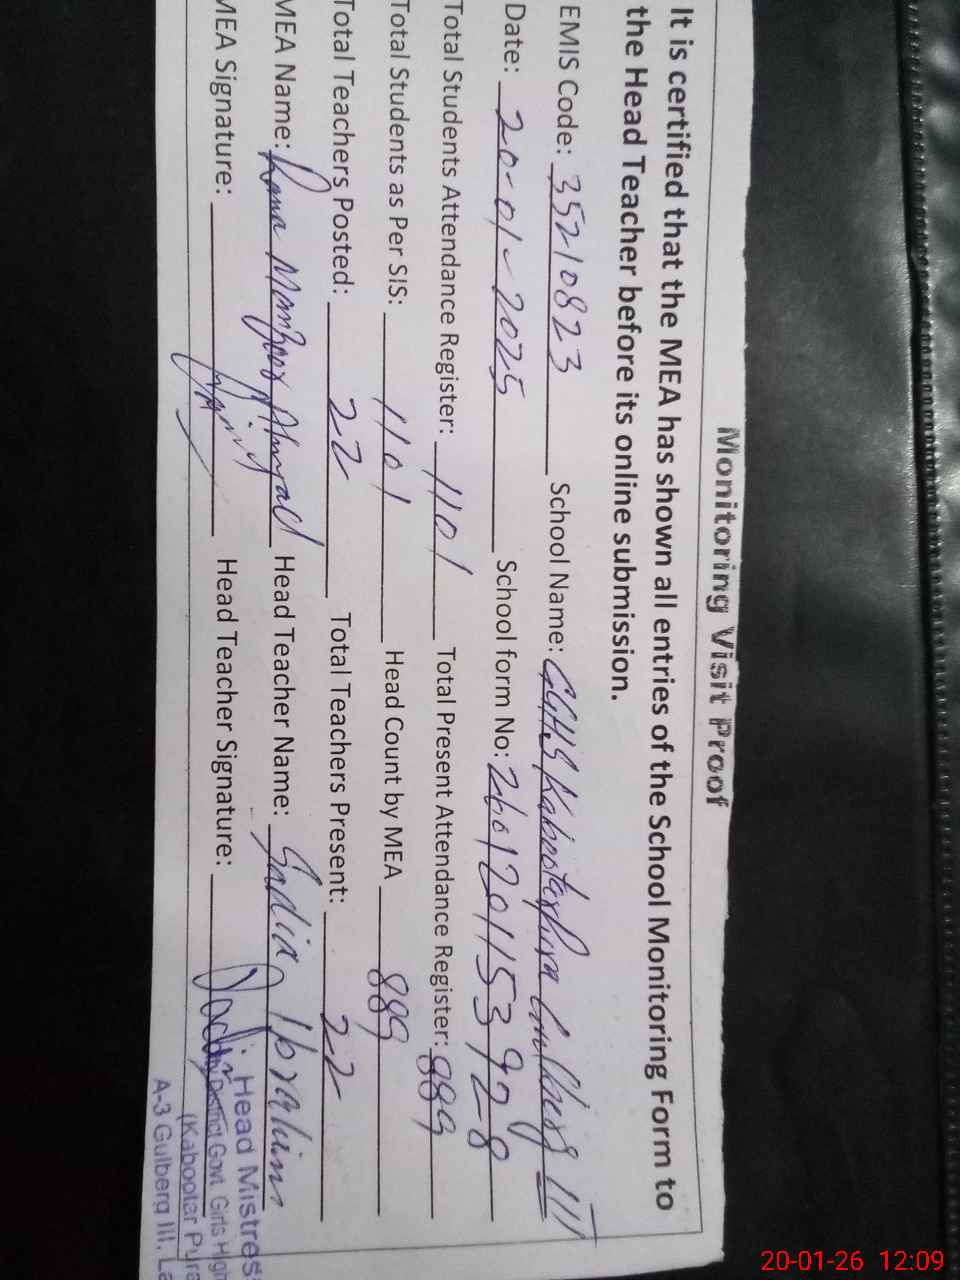 Monitoring Visit Proof
It is certified that the MEA has shown all entries of the School Monitoring Form to
the Head Teacher before its online submission.
EMIS Code: 35210823 School Name: GGHS Kabooterpura Gulberg III
Date: 20-01-2025 School form No: 260120115392-8
Total Students Attendance Register: 1101 Total Present Attendance Register: 889
Total Students as Per SIS: 1101 Head Count by MEA 889
Total Teachers Posted: 22 Total Teachers Present: 22
MEA Name: Rana Manzoor Ahmad Head Teacher Name: Sadia Ibrahim
MEA Signature: Head Teacher Signature:
Head Mistres
District Govt. Girls High
(Kabootar Pura
A-3 Gulberg III, La
20-01-26 12:09